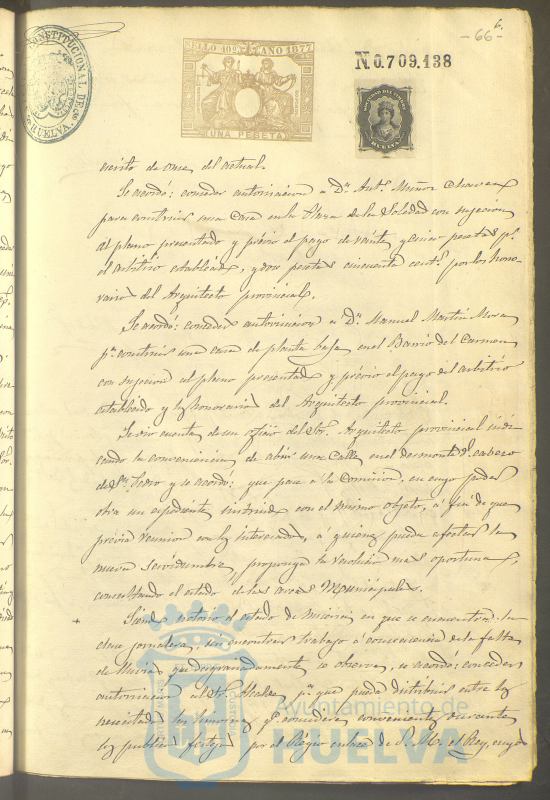 66
SELLO 10º AÑO 1877
UNA PESETA
N.0.709.138
CONSTITUCIONAL DE
HUELVA
HUELVA
escrito de once del actual.
Se acordó: conceder autorizacion a Dn. Antº. Muñoz Chaves
para construir una Casa en la Plaza de la Soledad con sujecion
al plano presentado y prévio el pago de veinte y cinco pesetas pr.
el arbitrio establecido, y doce pesetas cincuenta cents. por los hono-
rarios del Arquitecto provincial.
Se acordó: conceder autorizacion a Dn. Manuel Martin Mora
pa. construir una casa de planta baja en el Barrio del Carmen
con sujecion al plano presentado y prévio el pago del arbitrio
establecido y los honorarios del Arquitecto provincial.
Se dio cuenta de un oficio del Sor. Arquitecto provincial indi-
cando la conveniencia de abrir una Calle en el desmonte del cabezo
de Sn. Pedro y se acordó: que pase á la Comision, en cuyo poder
obra un expediente instruido con el mismo objeto, á fin de que
prévia reunion con los interesados, á quienes pueda afectar la
nueva servidumbre, proponga la resolucion mas oportuna,
consultando el estado de las arcas Municipales.
Siendo notorio el estado de miseria en que se encuentra la
clase jornalera, sin encontrar trabajo á consecuencia de la falta
de lluvias que desgraciadamente se observa, se acordó: conceder
autorizacion al Sr. Alcalde pa. que pueda distribuir entre los
necesitados las limosnas qe. considere convenientes durante
los publicos festejos por el Regio enlace de S. M. el Rey, cuyo
Ayuntamiento de
HUELVA